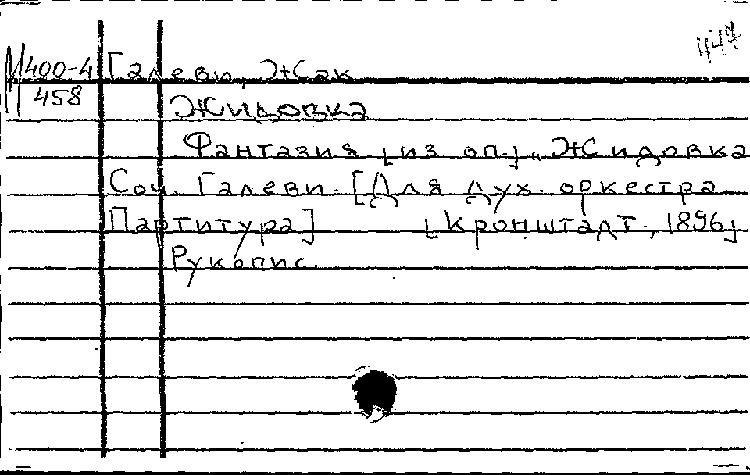 447
М400-4 Галеви, Жак
458
Жидовка
Фантазия [из оп.] „Жидовка
Соч. Галеви. [Для дух. оркестра
Партитура] [Кронштадт, 1896]
Рукопис.